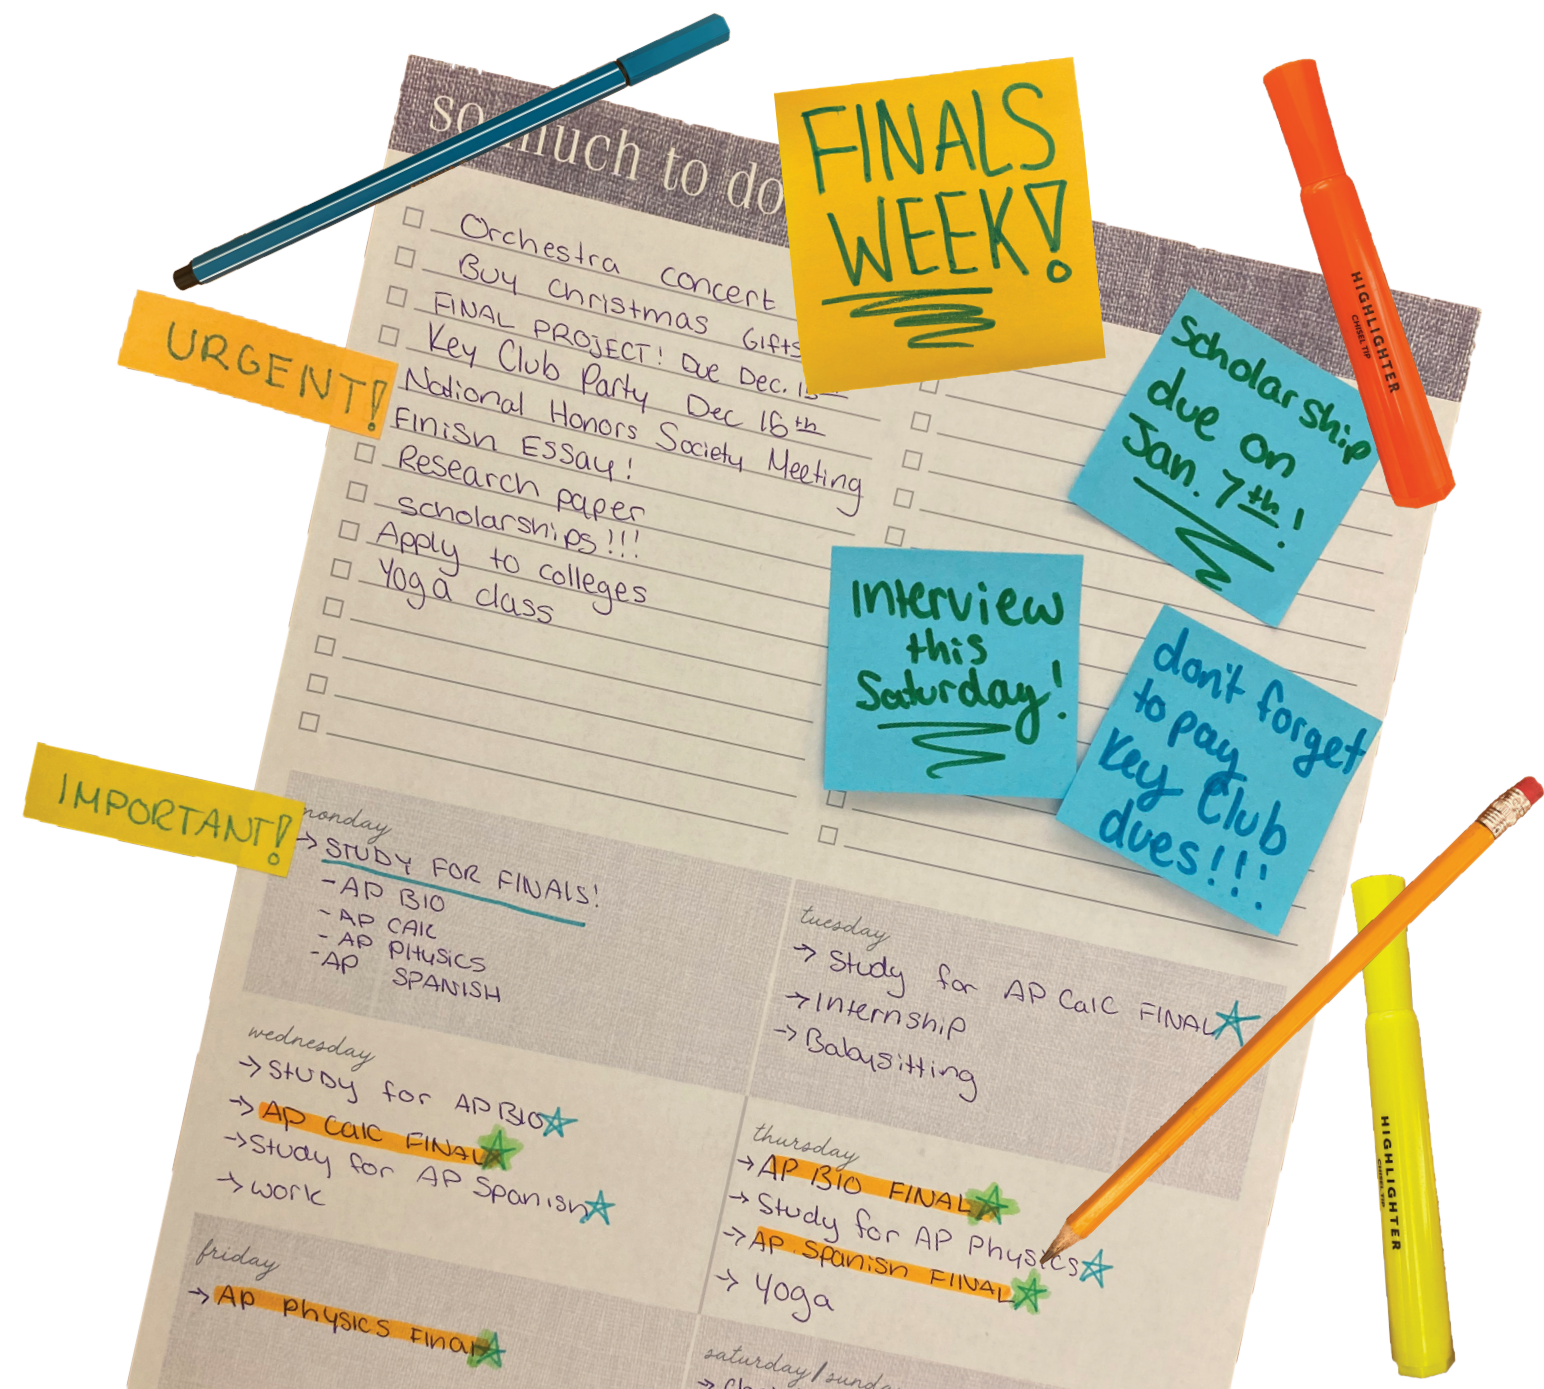 so much to do
FINALS
WEEK!
URGENT!
Orchestra concert
Buy Christmas Gifts
FINAL PROJECT! Due Dec.
Key Club Party Dec 16th
National Honors Society Meeting
Finish Essay!
Research paper
scholarships!!!
Apply to colleges
Yoga class
scholarship
due on
Jan. 7th!
HIGHLIGHTER
CHISEL TIP
Interview
this
Saturday!
don't forget
to pay
Key Club
dues!!!
IMPORTANT!
monday
→ STUDY FOR FINALS!
- AP BIO
- AP CALC
- AP PHYSICS
- AP SPANISH
tuesday
→ Study for AP Calc FINAL
→ Internship
→ Babysitting
wednesday
→ Study for AP BIO
→ AP Calc FINAL
→ Study for AP Spanish
→ work
thursday
→ AP BIO FINAL
→ Study for AP Physics
→ AP Spanish FINAL
→ Yoga
friday
→ AP Physics Final
saturday/sunday
HIGHLIGHTER
CHISEL TIP